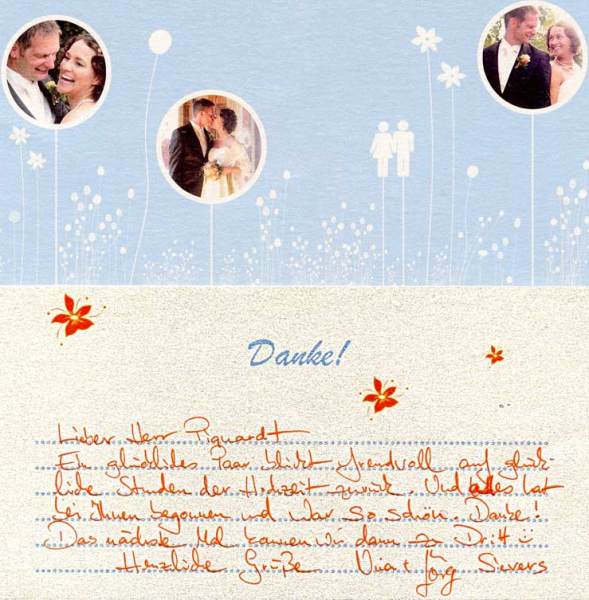 Danke!
Lieber Herr Piquardt
Ein glückliches Paar blickt freudvoll auf glück-
liche Stunden der Hochzeit zurück. Und alles hat
bei Ihnen begonnen und war so schön. Danke!
Das nächste Mal kommen wir dann zu Dritt
Herzliche Grüße + Jörg Sievers